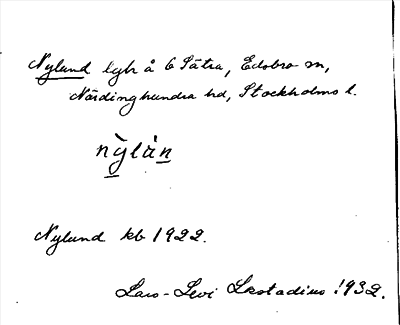 Nylund lgh å 6 Sätra, Edsbro sn,
Närdinghundra hd, Stockholms l.
nỳlàn
Nylund kb 1922.
Lars-Levi Læstadius 1932.